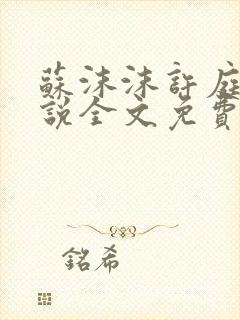 蘇沫沫許庭
說全文免費
銘希